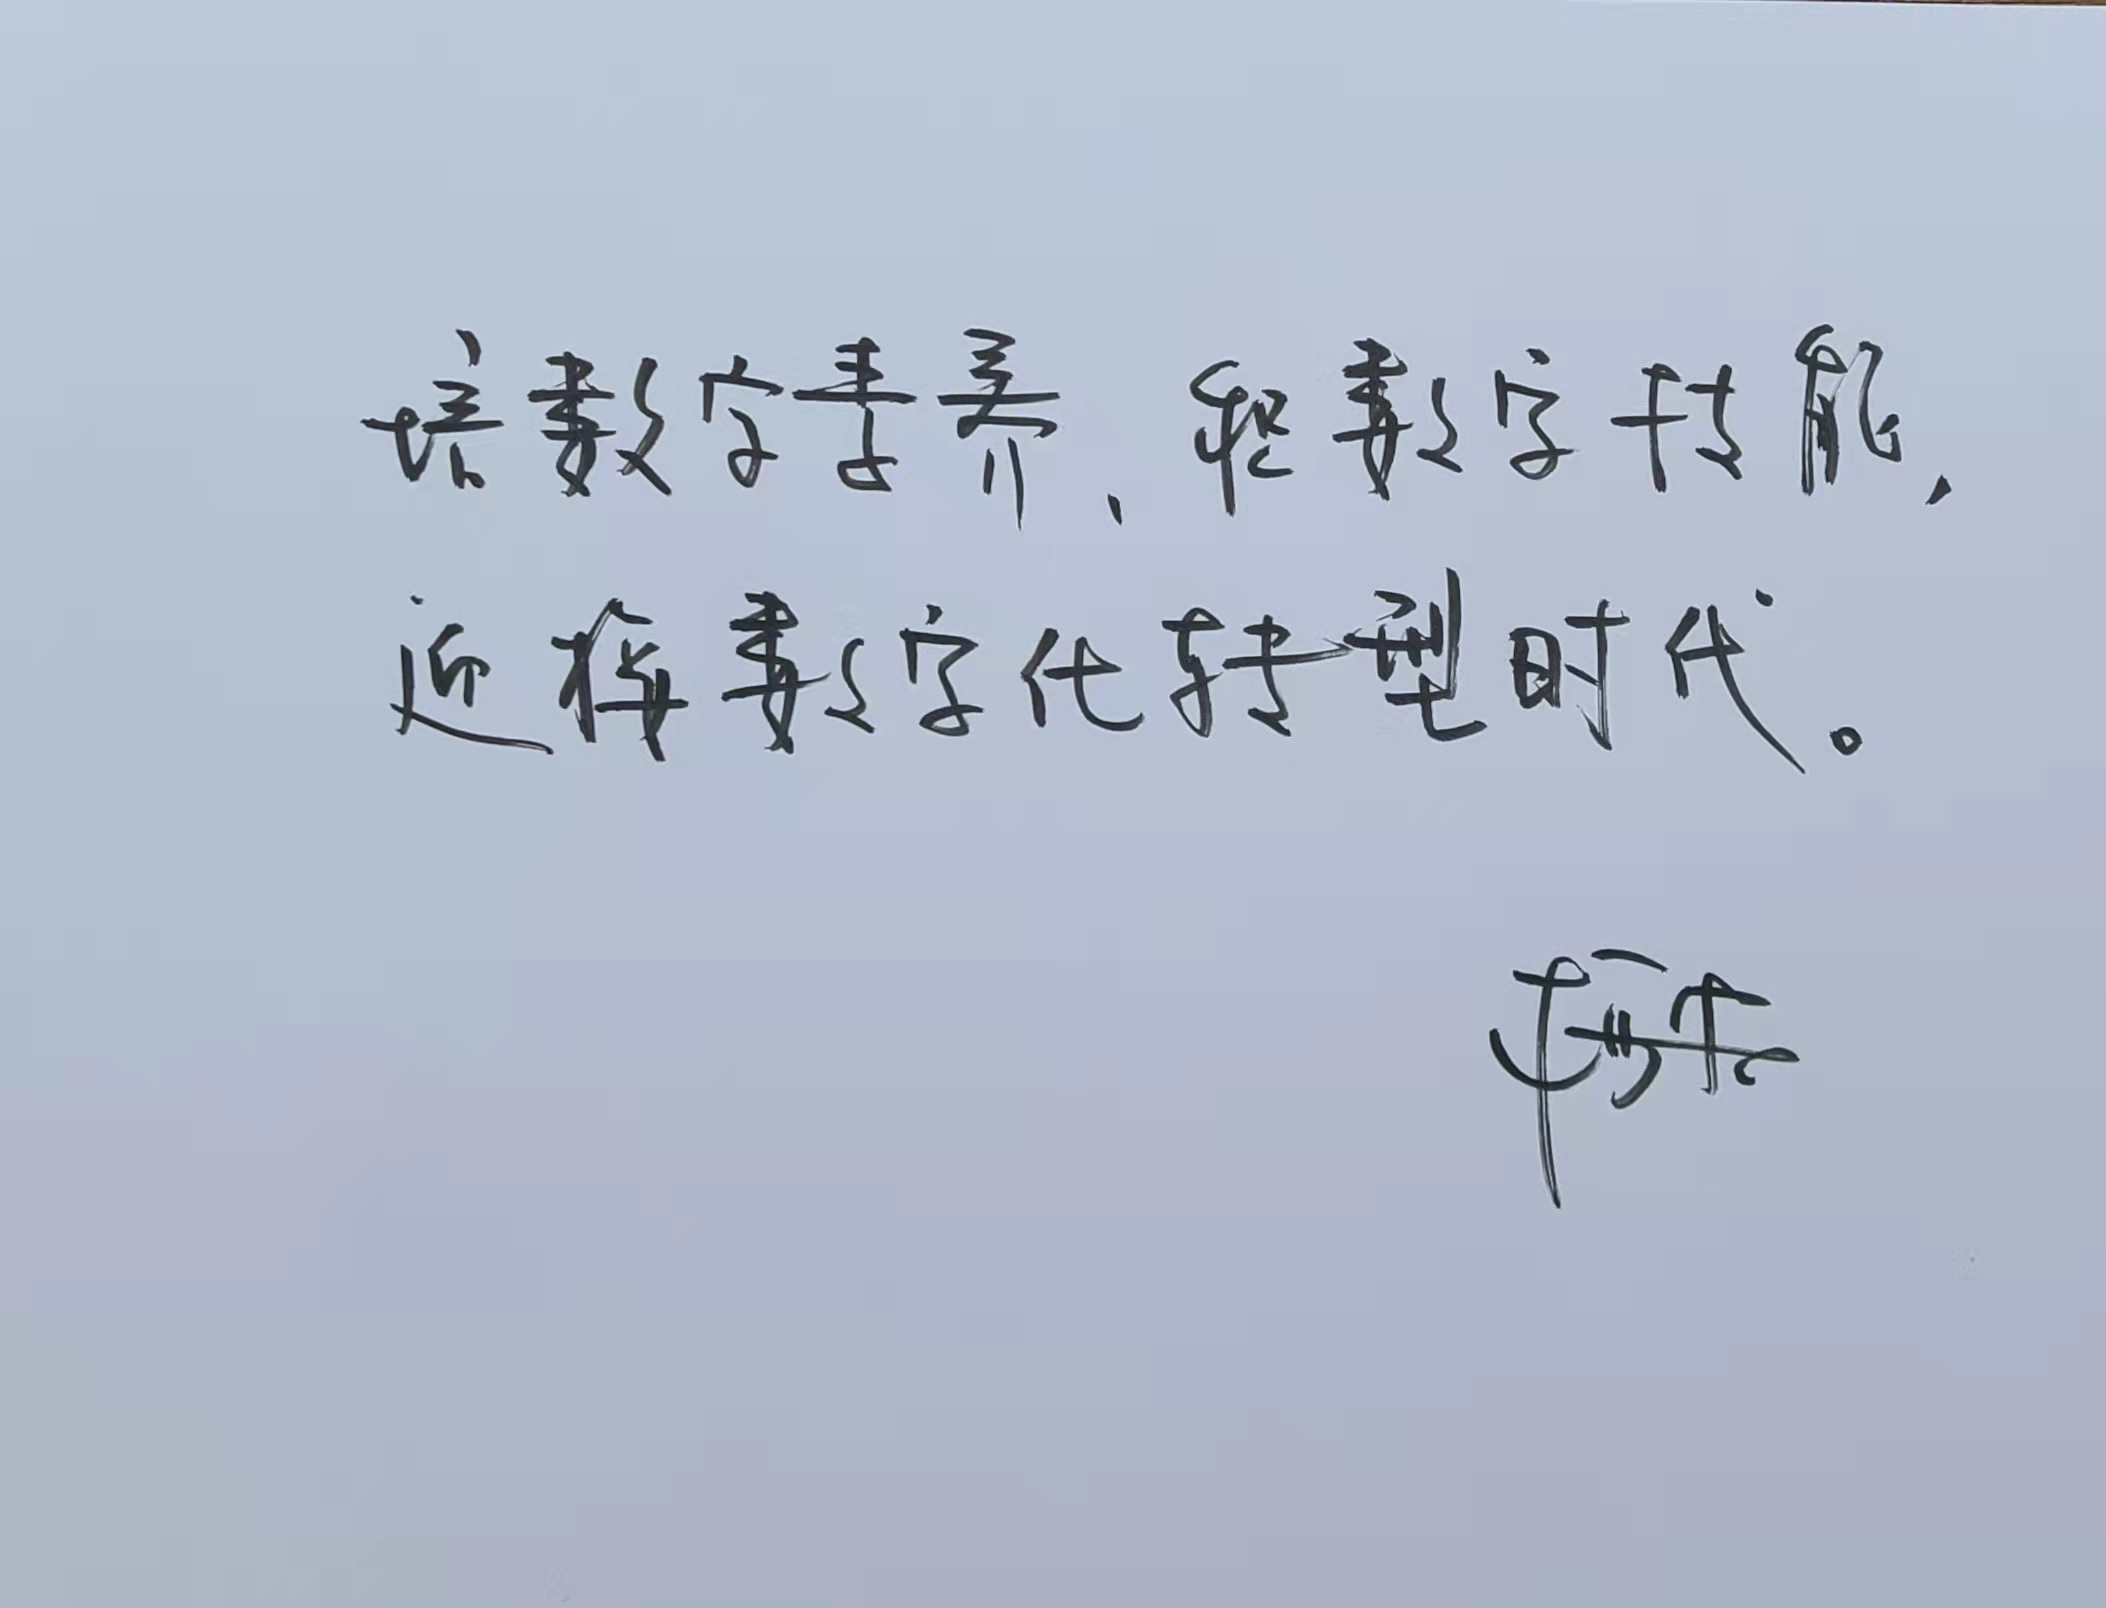 培数字素养、强数字技能,
迎接数字化转型时代。